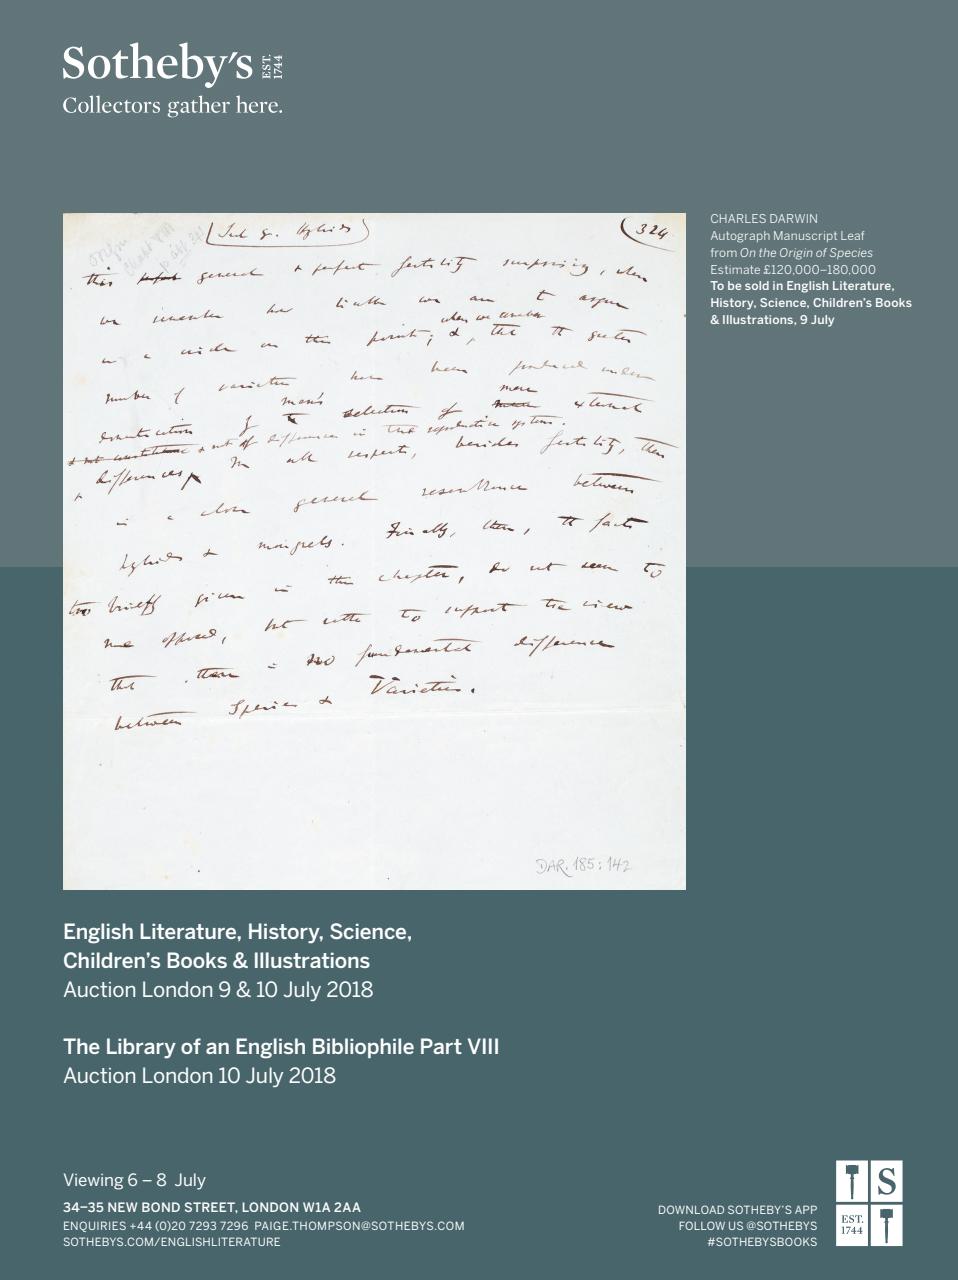 Sotheby's EST. 1744
Collectors gather here.
324
this general & perfect fertility surprising, when
we remember how liable we are to argue
when we remember
in a circle on this point; & that the greater
number of varieties have been produced under
man's more
domestication by the selection of mere external
& not of differences in the reproductive system.
differences, In all respects, besides fertility, there
is a close general resemblance between
hybrids & mongrels. Finally, then, the facts
briefly given in this chapter, do not seem to
me opposed, but rather to support the view
that there is no fundamental difference
between Species & Varieties.
DAR. 185: 142
CHARLES DARWIN
Autograph Manuscript Leaf
from On the Origin of Species
Estimate £120,000–180,000
To be sold in English Literature,
History, Science, Children's Books
& Illustrations, 9 July
English Literature, History, Science,
Children's Books & Illustrations
Auction London 9 & 10 July 2018
The Library of an English Bibliophile Part VIII
Auction London 10 July 2018
Viewing 6 – 8 July
34–35 NEW BOND STREET, LONDON W1A 2AA
ENQUIRIES +44 (0)20 7293 7296 PAIGE.THOMPSON@SOTHEBYS.COM
SOTHEBYS.COM/ENGLISHLITERATURE
DOWNLOAD SOTHEBY'S APP
FOLLOW US @SOTHEBYS
#SOTHEBYSBOOKS
S
EST.
1744